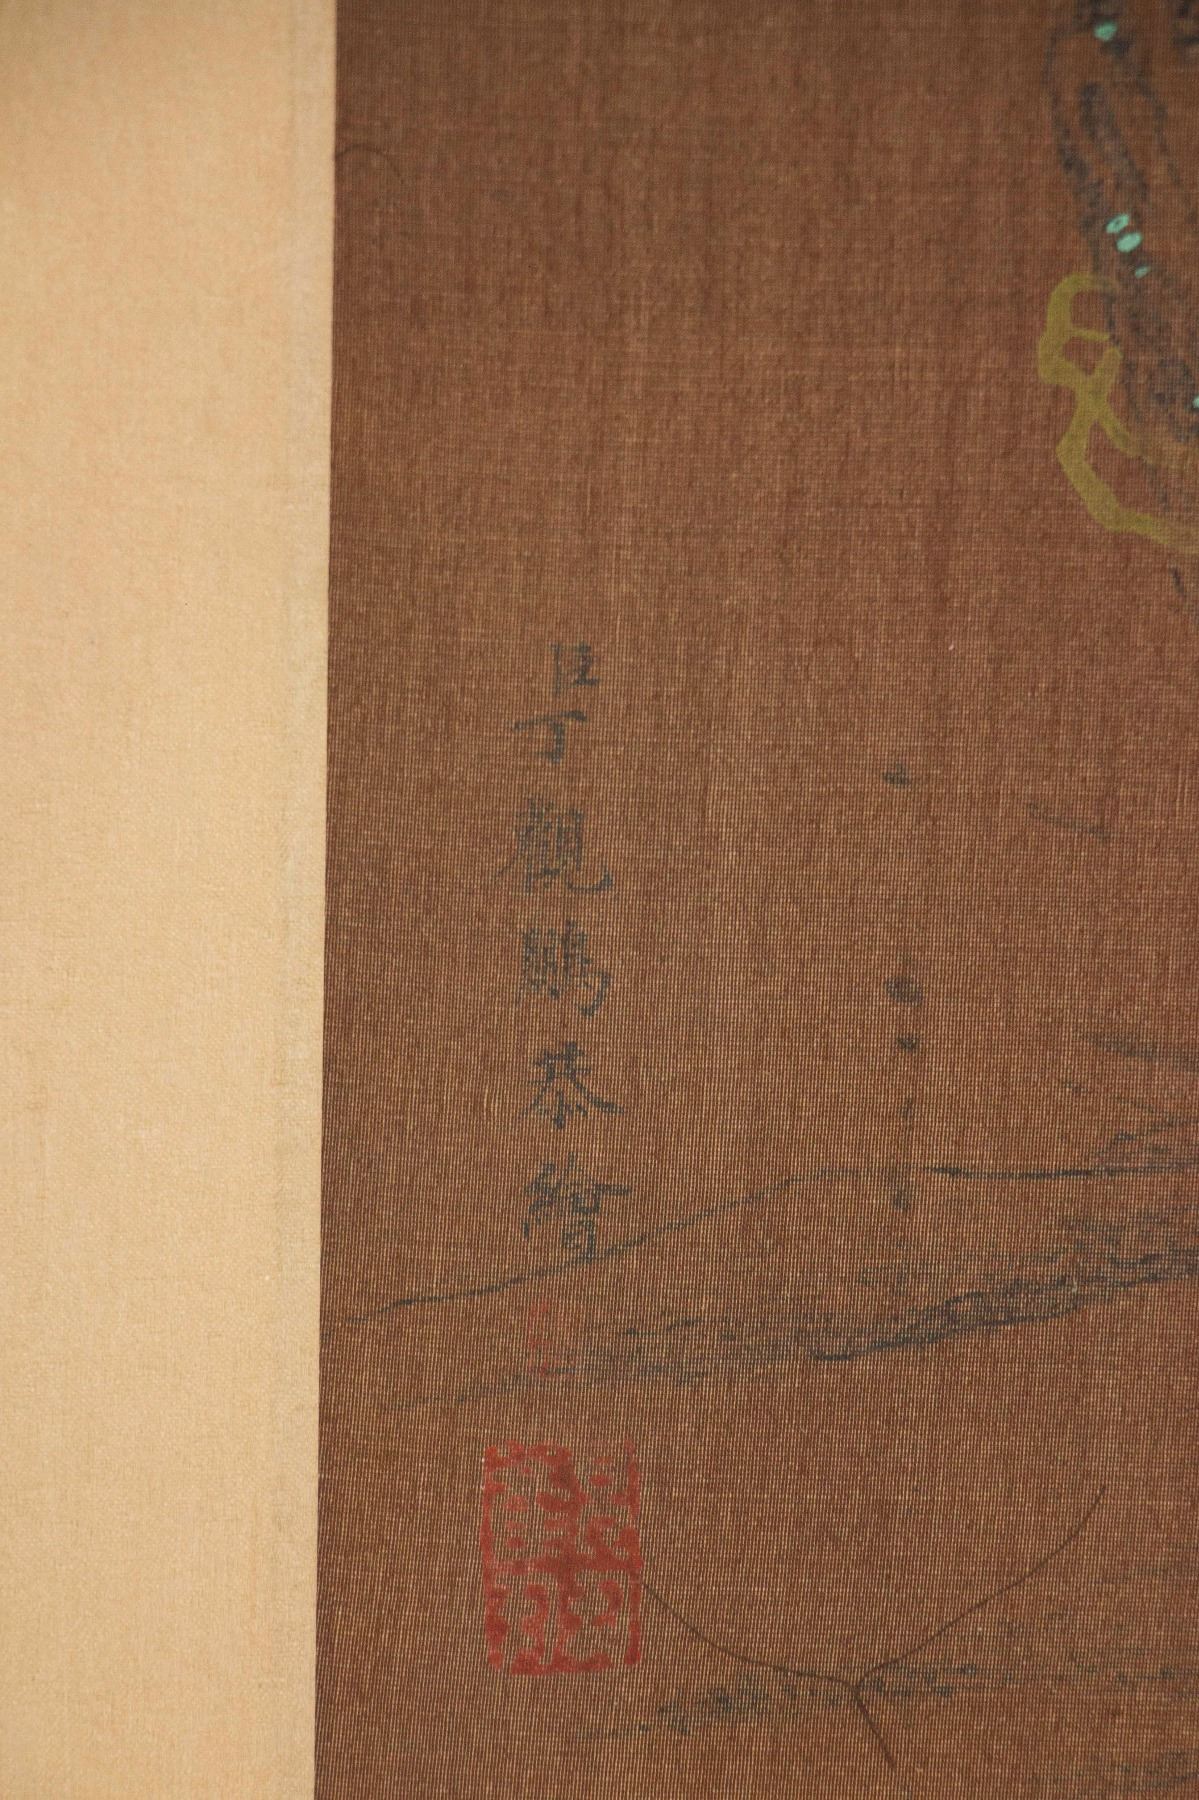 臣丁觀鵬恭繪